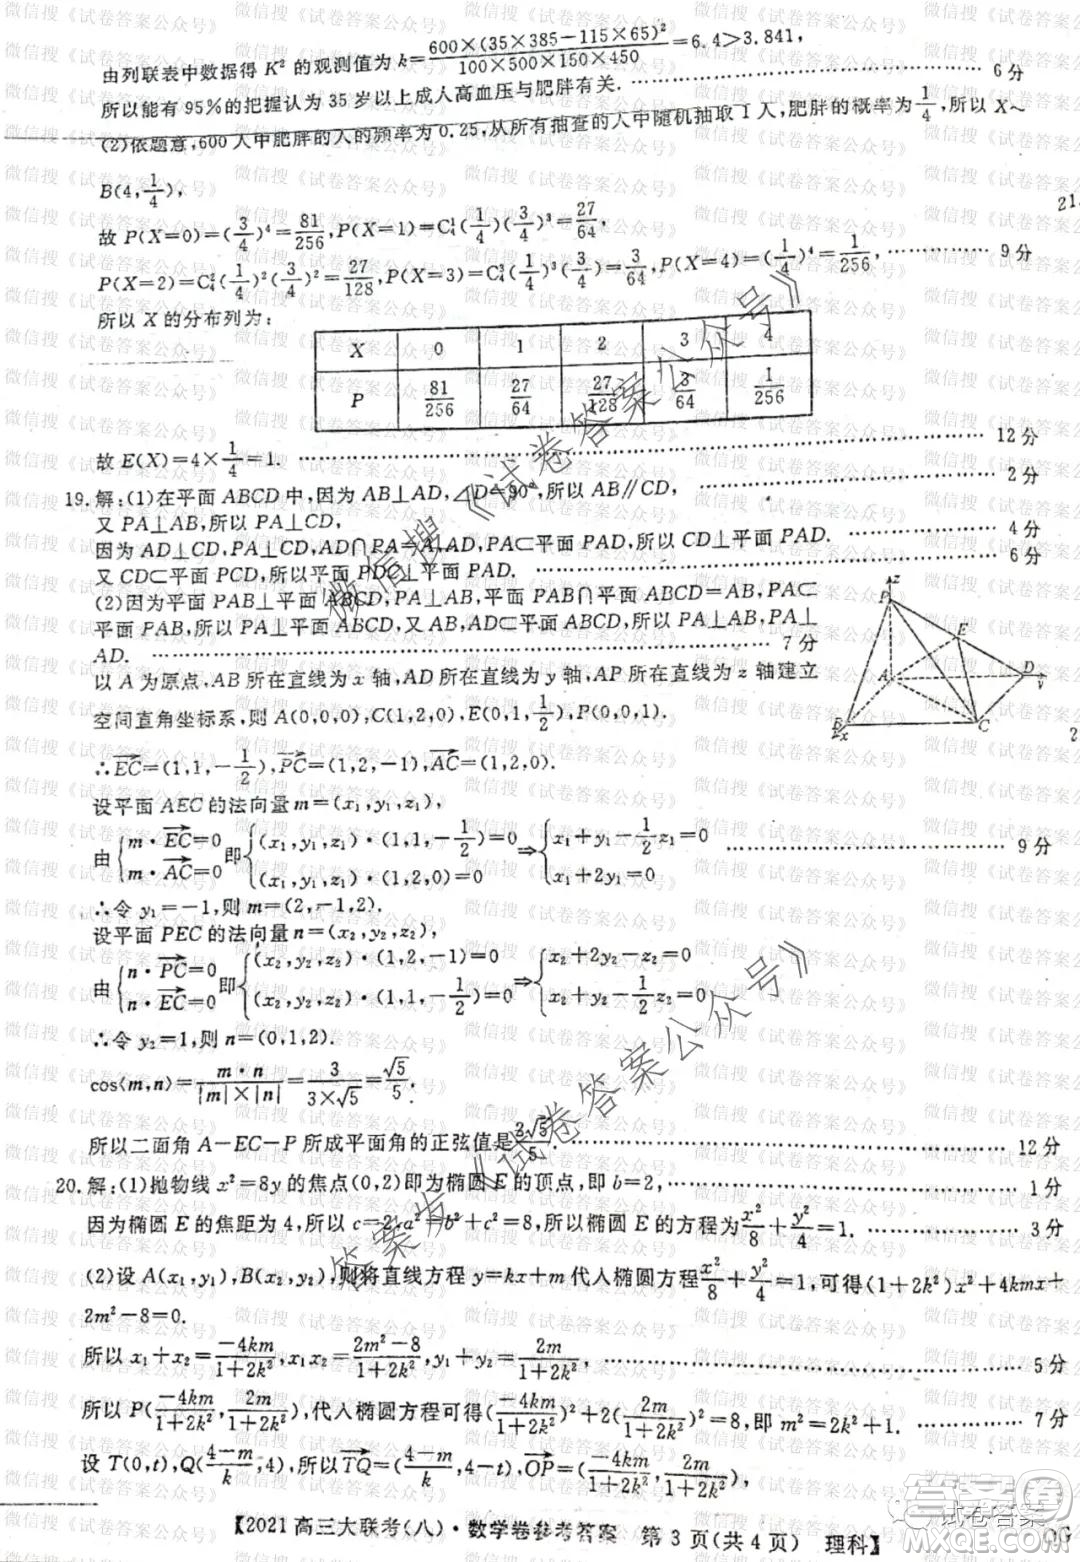 由列联表中数据得 K² 的观测值为 k=600×(35×385-115×65)²/(100×500×150×450)=6.4>3.841,
所以能有 95%的把握认为 35 岁以上成人高血压与肥胖有关. 6 分
(2)依题意,600 人中肥胖的人的频率为 0.25,从所有抽查的人中随机抽取 1 人,肥胖的概率为 1/4,所以 X~
B(4,1/4),
故 P(X=0)=(3/4)⁴=81/256,P(X=1)=C₄¹(1/4)(3/4)³=27/64,
P(X=2)=C₄²(1/4)²(3/4)²=27/128,P(X=3)=C₄³(1/4)³(3/4)=3/64,P(X=4)=(1/4)⁴=1/256, 9 分
所以 X 的分布列为:
X 0 1 2 3 4
P 81/256 27/64 27/128 3/64 1/256
故 E(X)=4×1/4=1. 12 分
19.解:(1)在平面 ABCD 中,因为 AB⊥AD,∠D=90°,所以 AB∥CD, 2 分
又 PA⊥AB,所以 PA⊥CD,
因为 AD⊥CD,PA⊥CD,AD∩PA=A,AD,PA⊂平面 PAD.所以 CD⊥平面 PAD. 4 分
又 CD⊂平面 PCD,所以平面 PDC⊥平面 PAD. 6 分
(2)因为平面 PAB⊥平面 ABCD,平面 PAB∩平面 ABCD=AB,PA⊂
平面 PAB,所以 PA⊥平面 ABCD,又 AB,AD⊂平面 ABCD,所以 PA⊥AB,PA⊥
AD. 7 分
以 A 为原点,AB 所在直线为 x 轴,AD 所在直线为 y 轴,AP 所在直线为 z 轴建立
空间直角坐标系,则 A(0,0,0),C(1,2,0),E(0,1,1/2),P(0,0,1).
∴EC=(1,1,-1/2),PC=(1,2,-1),AC=(1,2,0).
设平面 AEC 的法向量 m=(x₁,y₁,z₁),
由{m·EC=0 m·AC=0 即{(x₁,y₁,z₁)·(1,1,-1/2)=0 (x₁,y₁,z₁)·(1,2,0)=0 ⇒{x₁+y₁-1/2z₁=0 x₁+2y₁=0 9 分
∴令 y₁=-1,则 m=(2,-1,2).
设平面 PEC 的法向量 n=(x₂,y₂,z₂),
由{n·PC=0 n·EC=0 即{(x₂,y₂,z₂)·(1,2,-1)=0 (x₂,y₂,z₂)·(1,1,-1/2)=0 ⇒{x₂+2y₂-z₂=0 x₂+y₂-1/2z₂=0
∴令 y₂=1,则 n=(0,1,2).
cos⟨m,n⟩=m·n/(|m|×|n|)=3/(3×√5)=√5/5.
所以二面角 A-EC-P 所成平面角的正弦值是2√5/5. 12 分
20.解:(1)抛物线 x²=8y 的焦点(0,2)即为椭圆 E 的顶点,即 b=2, 1 分
因为椭圆 E 的焦距为 4,所以 c=2,a²=b²+c²=8,所以椭圆 E 的方程为x²/8+y²/4=1. 3 分
(2)设 A(x₁,y₁),B(x₂,y₂),则将直线方程 y=kx+m 代入椭圆方程x²/8+y²/4=1,可得(1+2k²)x²+4kmx+
2m²-8=0.
所以 x₁+x₂=-4km/(1+2k²),x₁x₂=(2m²-8)/(1+2k²),y₁+y₂=2m/(1+2k²), 5 分
所以 P(-4km/(1+2k²),2m/(1+2k²)),代入椭圆方程可得(-4km/(1+2k²))²+2(2m/(1+2k²))²=8,即 m²=2k²+1. 7 分
设 T(0,t),Q((4-m)/k,4),所以TQ=((4-m)/k,4-t),OP=(-4km/(1+2k²),2m/(1+2k²)),
【2021 高三大联考(八)·数学卷参考答案 第 3 页(共 4 页) 理科】
z
P
E
A
D
y
B
x
C
微信搜《试卷答案公众号》
答案圈
MXQE.COM